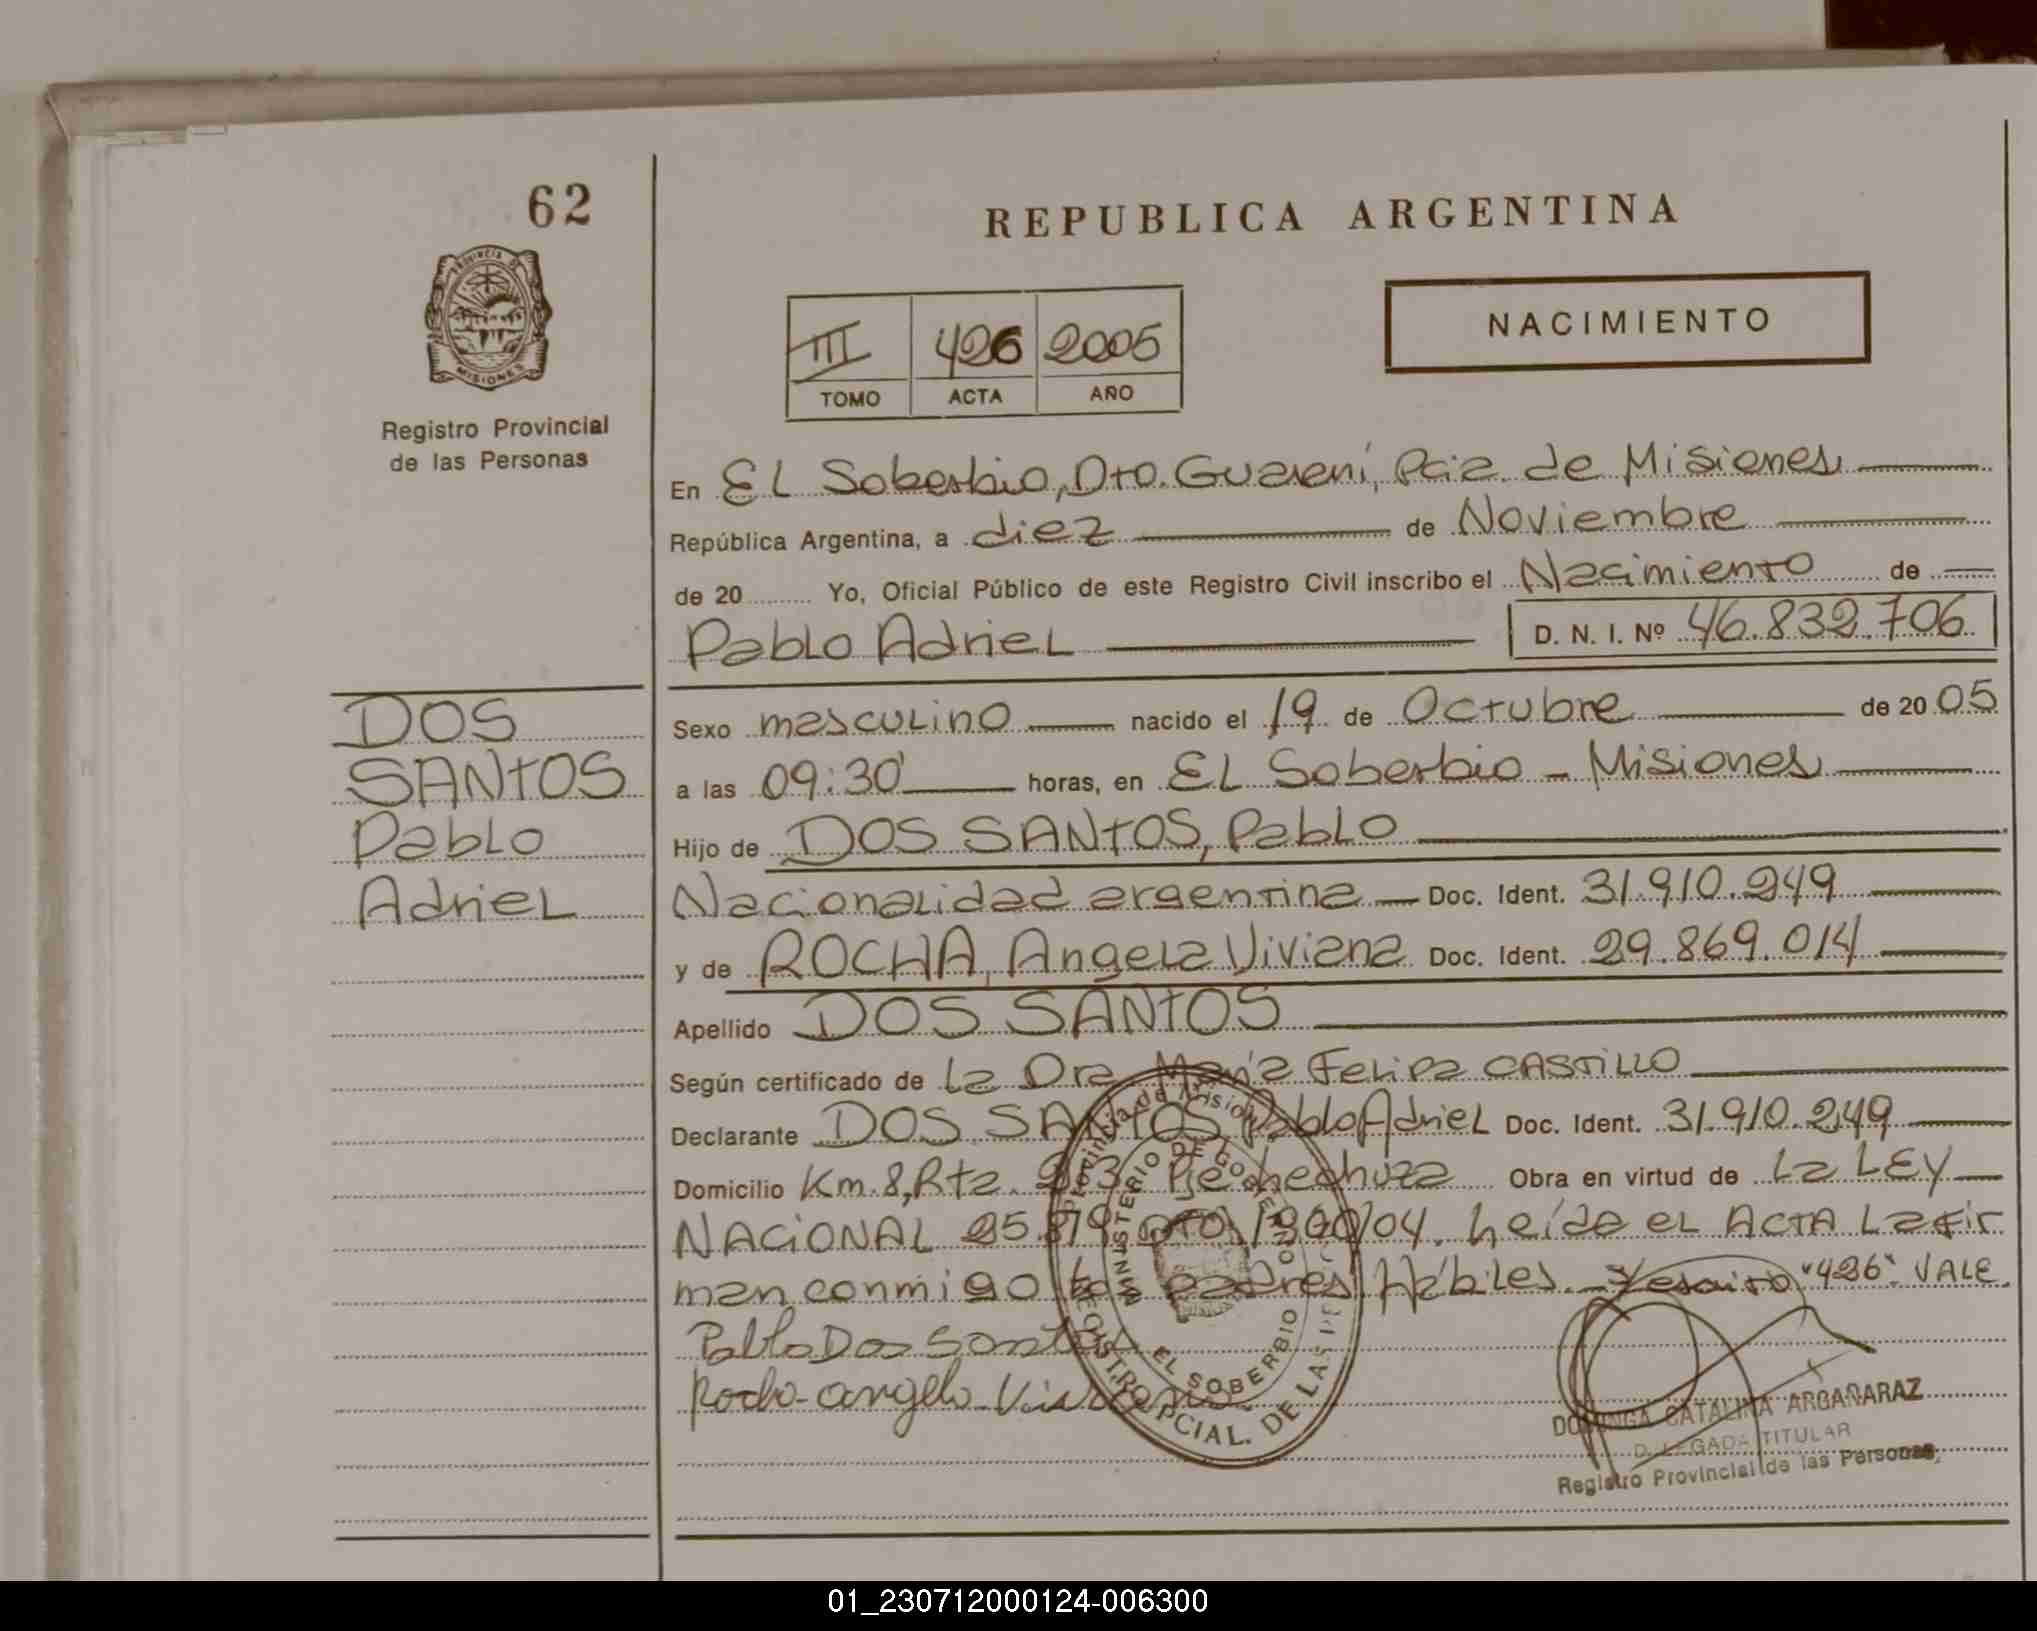 62
REPUBLICA ARGENTINA
PROVINCIA DE
MISIONES
Registro Provincial
de las Personas
III 426 2005
TOMO ACTA AÑO
NACIMIENTO
En EL Soberbio, Dto. Guaraní, Pcia. de Misiones
República Argentina, a diez de Noviembre
de 20 Yo, Oficial Público de este Registro Civil inscribo el Nacimiento de
Pablo Adriel D. N. I. Nº 46.832.706
DOS
SANTOS
Pablo
Adriel
Sexo masculino nacido el 19 de Octubre de 2005
a las 09:30' horas, en EL Soberbio - Misiones
Hijo de DOS SANTOS, Pablo
Nacionalidad argentina Doc. Ident. 31.910.249
y de ROCHA, Angela Viviana Doc. Ident. 29.869.014
Apellido DOS SANTOS
Según certificado de La Dra. María Felipa CASTILLO
Declarante DOS SANTOS Pablo Adriel Doc. Ident. 31.910.249
Domicilio Km. 8, Rta. Obra en virtud de La LEY
NACIONAL 25.819 Dto. 1900/04. Leída el ACTA La fir
man conmigo los padres Hábiles. "426" VALE.
Pablo Dos Santos
Rocha Angela Viviana
Provincia de Misiones
MINISTERIO DE GOBIERNO
EL SOBERBIO
REGISTRO PCIAL. DE LAS
DOMINGA CATALINA ARGAÑARAZ
DELEGADA TITULAR
Registro Provincial de las Personas
01_230712000124-006300